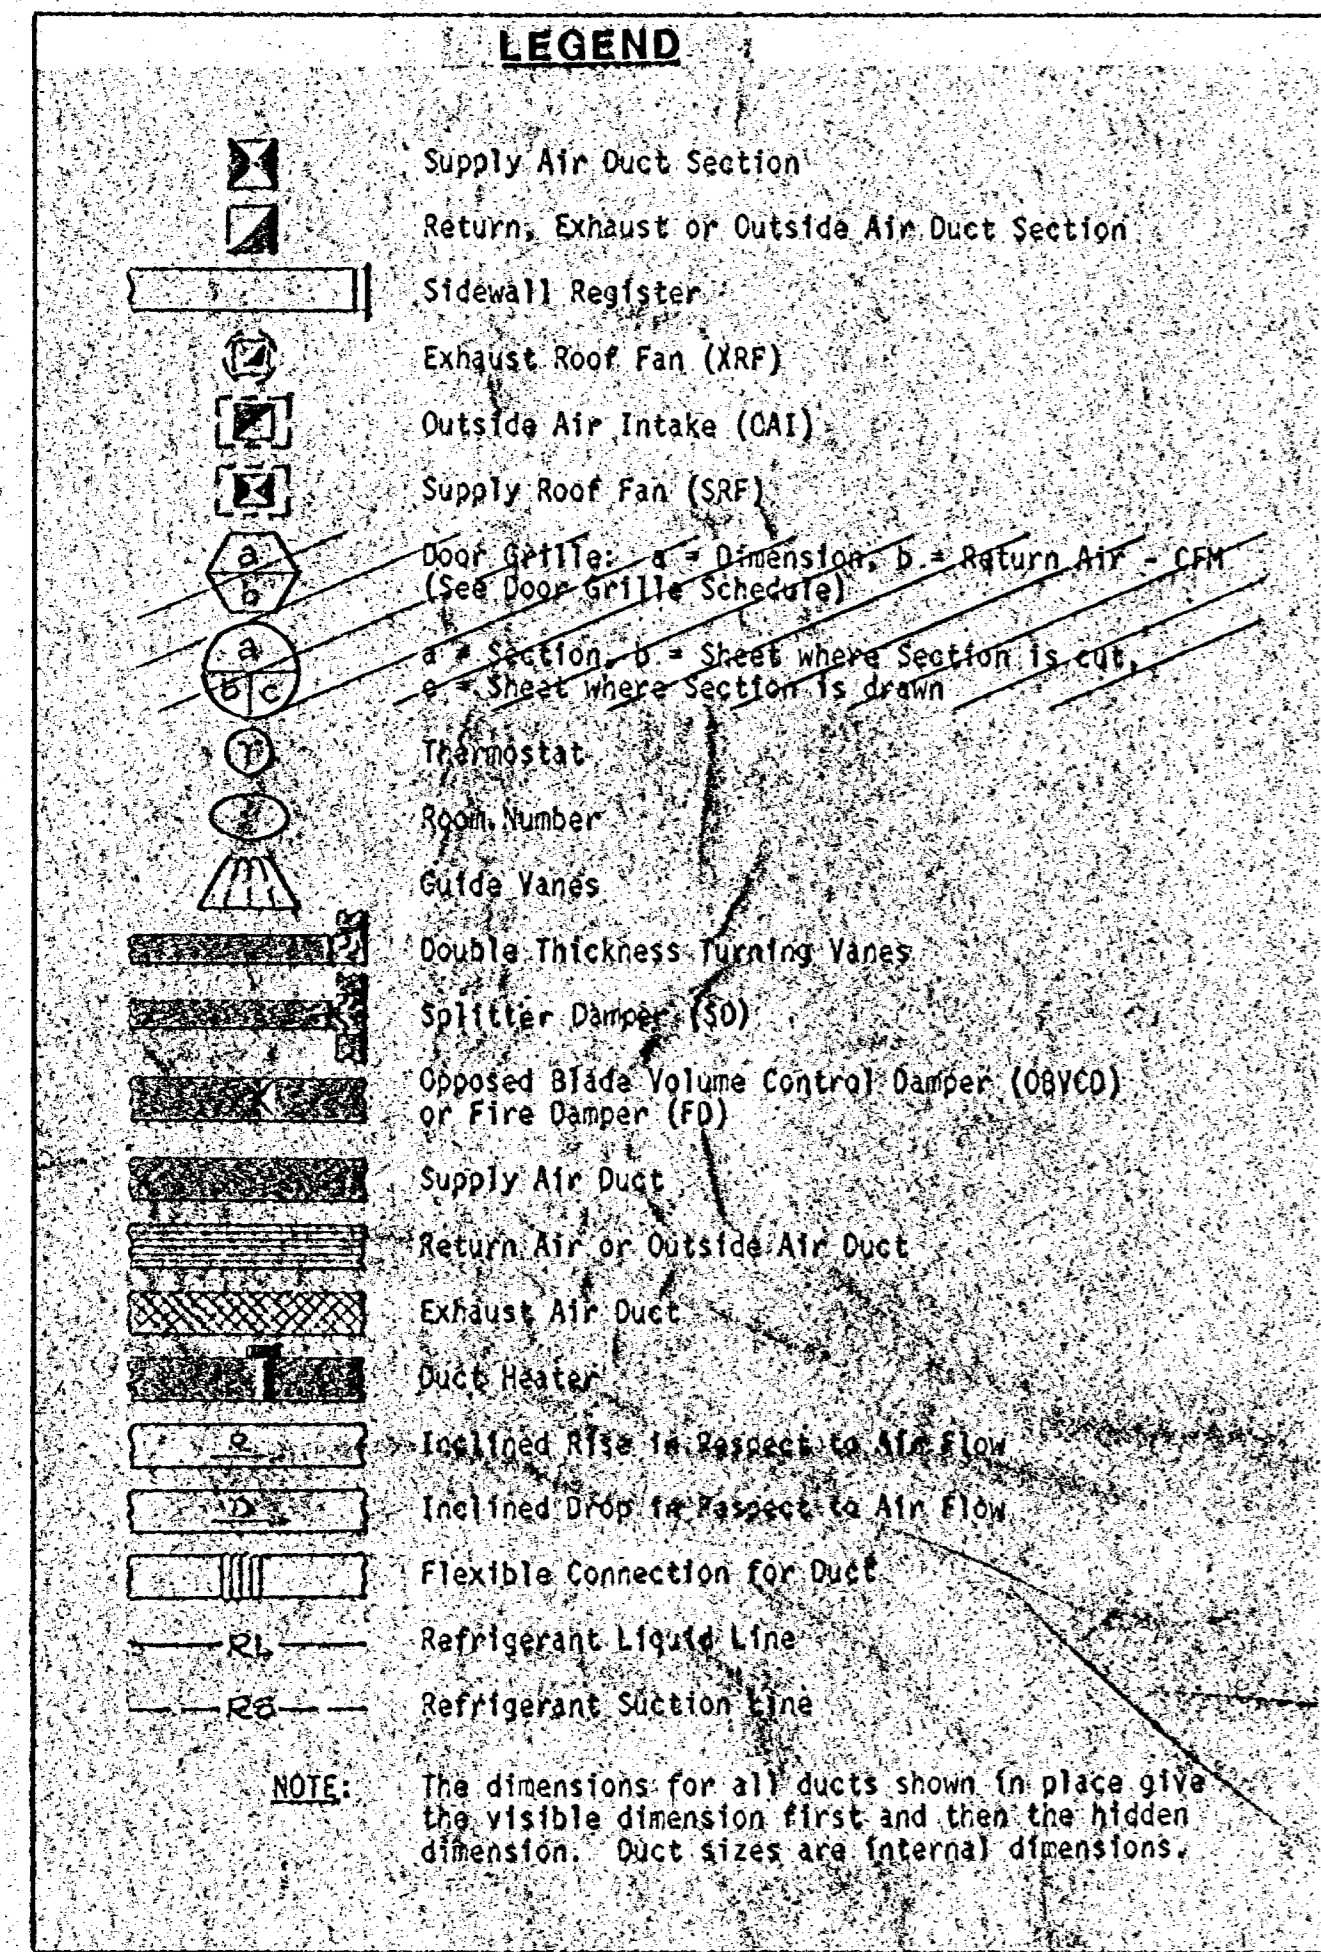 LEGEND
Supply Air Duct Section
Return, Exhaust or Outside Air Duct Section
Sidewall Register
Exhaust Roof Fan (XRF)
Outside Air Intake (OAI)
Supply Roof Fan (SRF)
a
b
Door Grille: a = Dimension, b = Return Air - CFM
(See Door Grille Schedule)
a
b c
a = Section, b = Sheet where Section is cut,
c = Sheet where Section is drawn
T
Thermostat
Room Number
Guide Vanes
Double Thickness Turning Vanes
Splitter Damper (SD)
Opposed Blade Volume Control Damper (OBVCD)
or Fire Damper (FD)
Supply Air Duct
Return Air or Outside Air Duct
Exhaust Air Duct
Duct Heater
R
Inclined Rise in Respect to Air Flow
D
Inclined Drop in Respect to Air Flow
Flexible Connection for Duct
RL
Refrigerant Liquid Line
RS
Refrigerant Suction Line
NOTE: The dimensions for all ducts shown in place give
the visible dimension first and then the hidden
dimension. Duct sizes are internal dimensions.